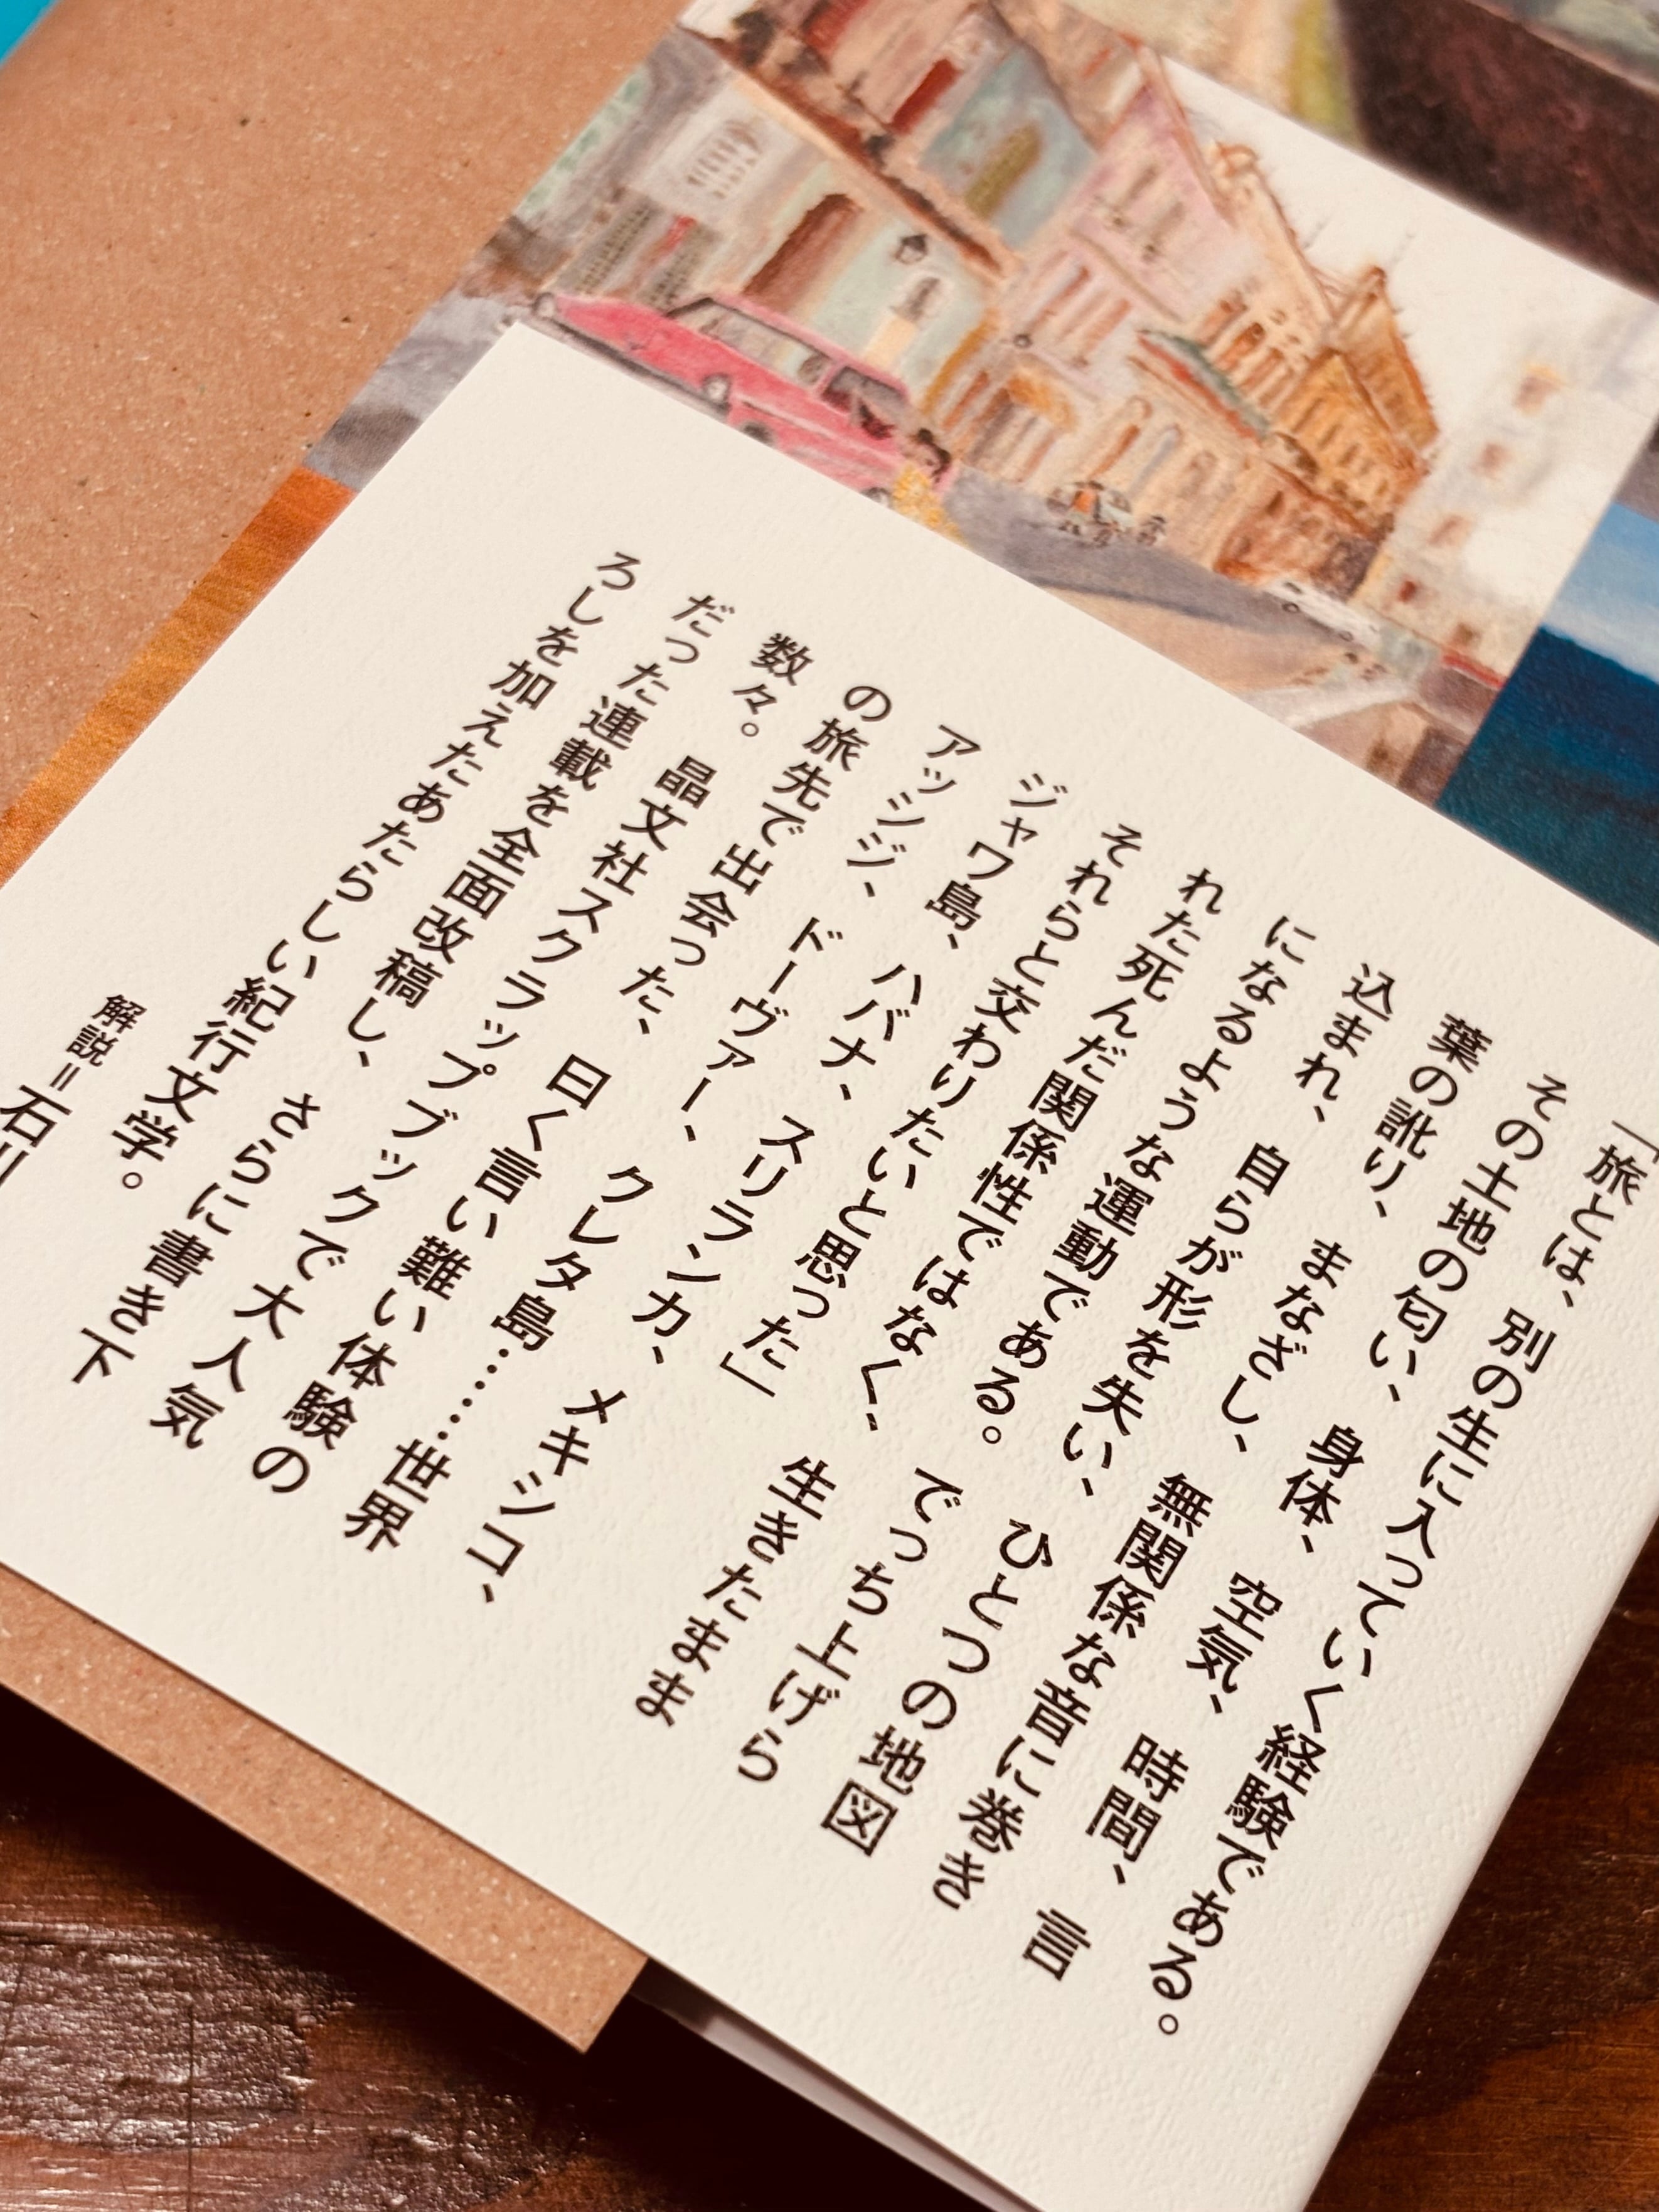 「旅とは、別の生に入っていく経験である。
その土地の匂い、身体、空気、時間、言
葉の訛り、まなざし、無関係な音に巻き
込まれ、自らが形を失い、ひとつの地図
になるような運動である。でっち上げら
れた死んだ関係性ではなく、生きたまま
それらと交わりたいと思った」
ジャワ島、ハバナ、スリランカ、メキシコ、
アッシジ、ドーヴァー、クレタ島……世界
の旅先で出会った、曰く言い難い体験の
数々。晶文社スクラップブックで大人気
だった連載を全面改稿し、さらに書き下
ろしを加えたあたらしい紀行文学。
解説＝石